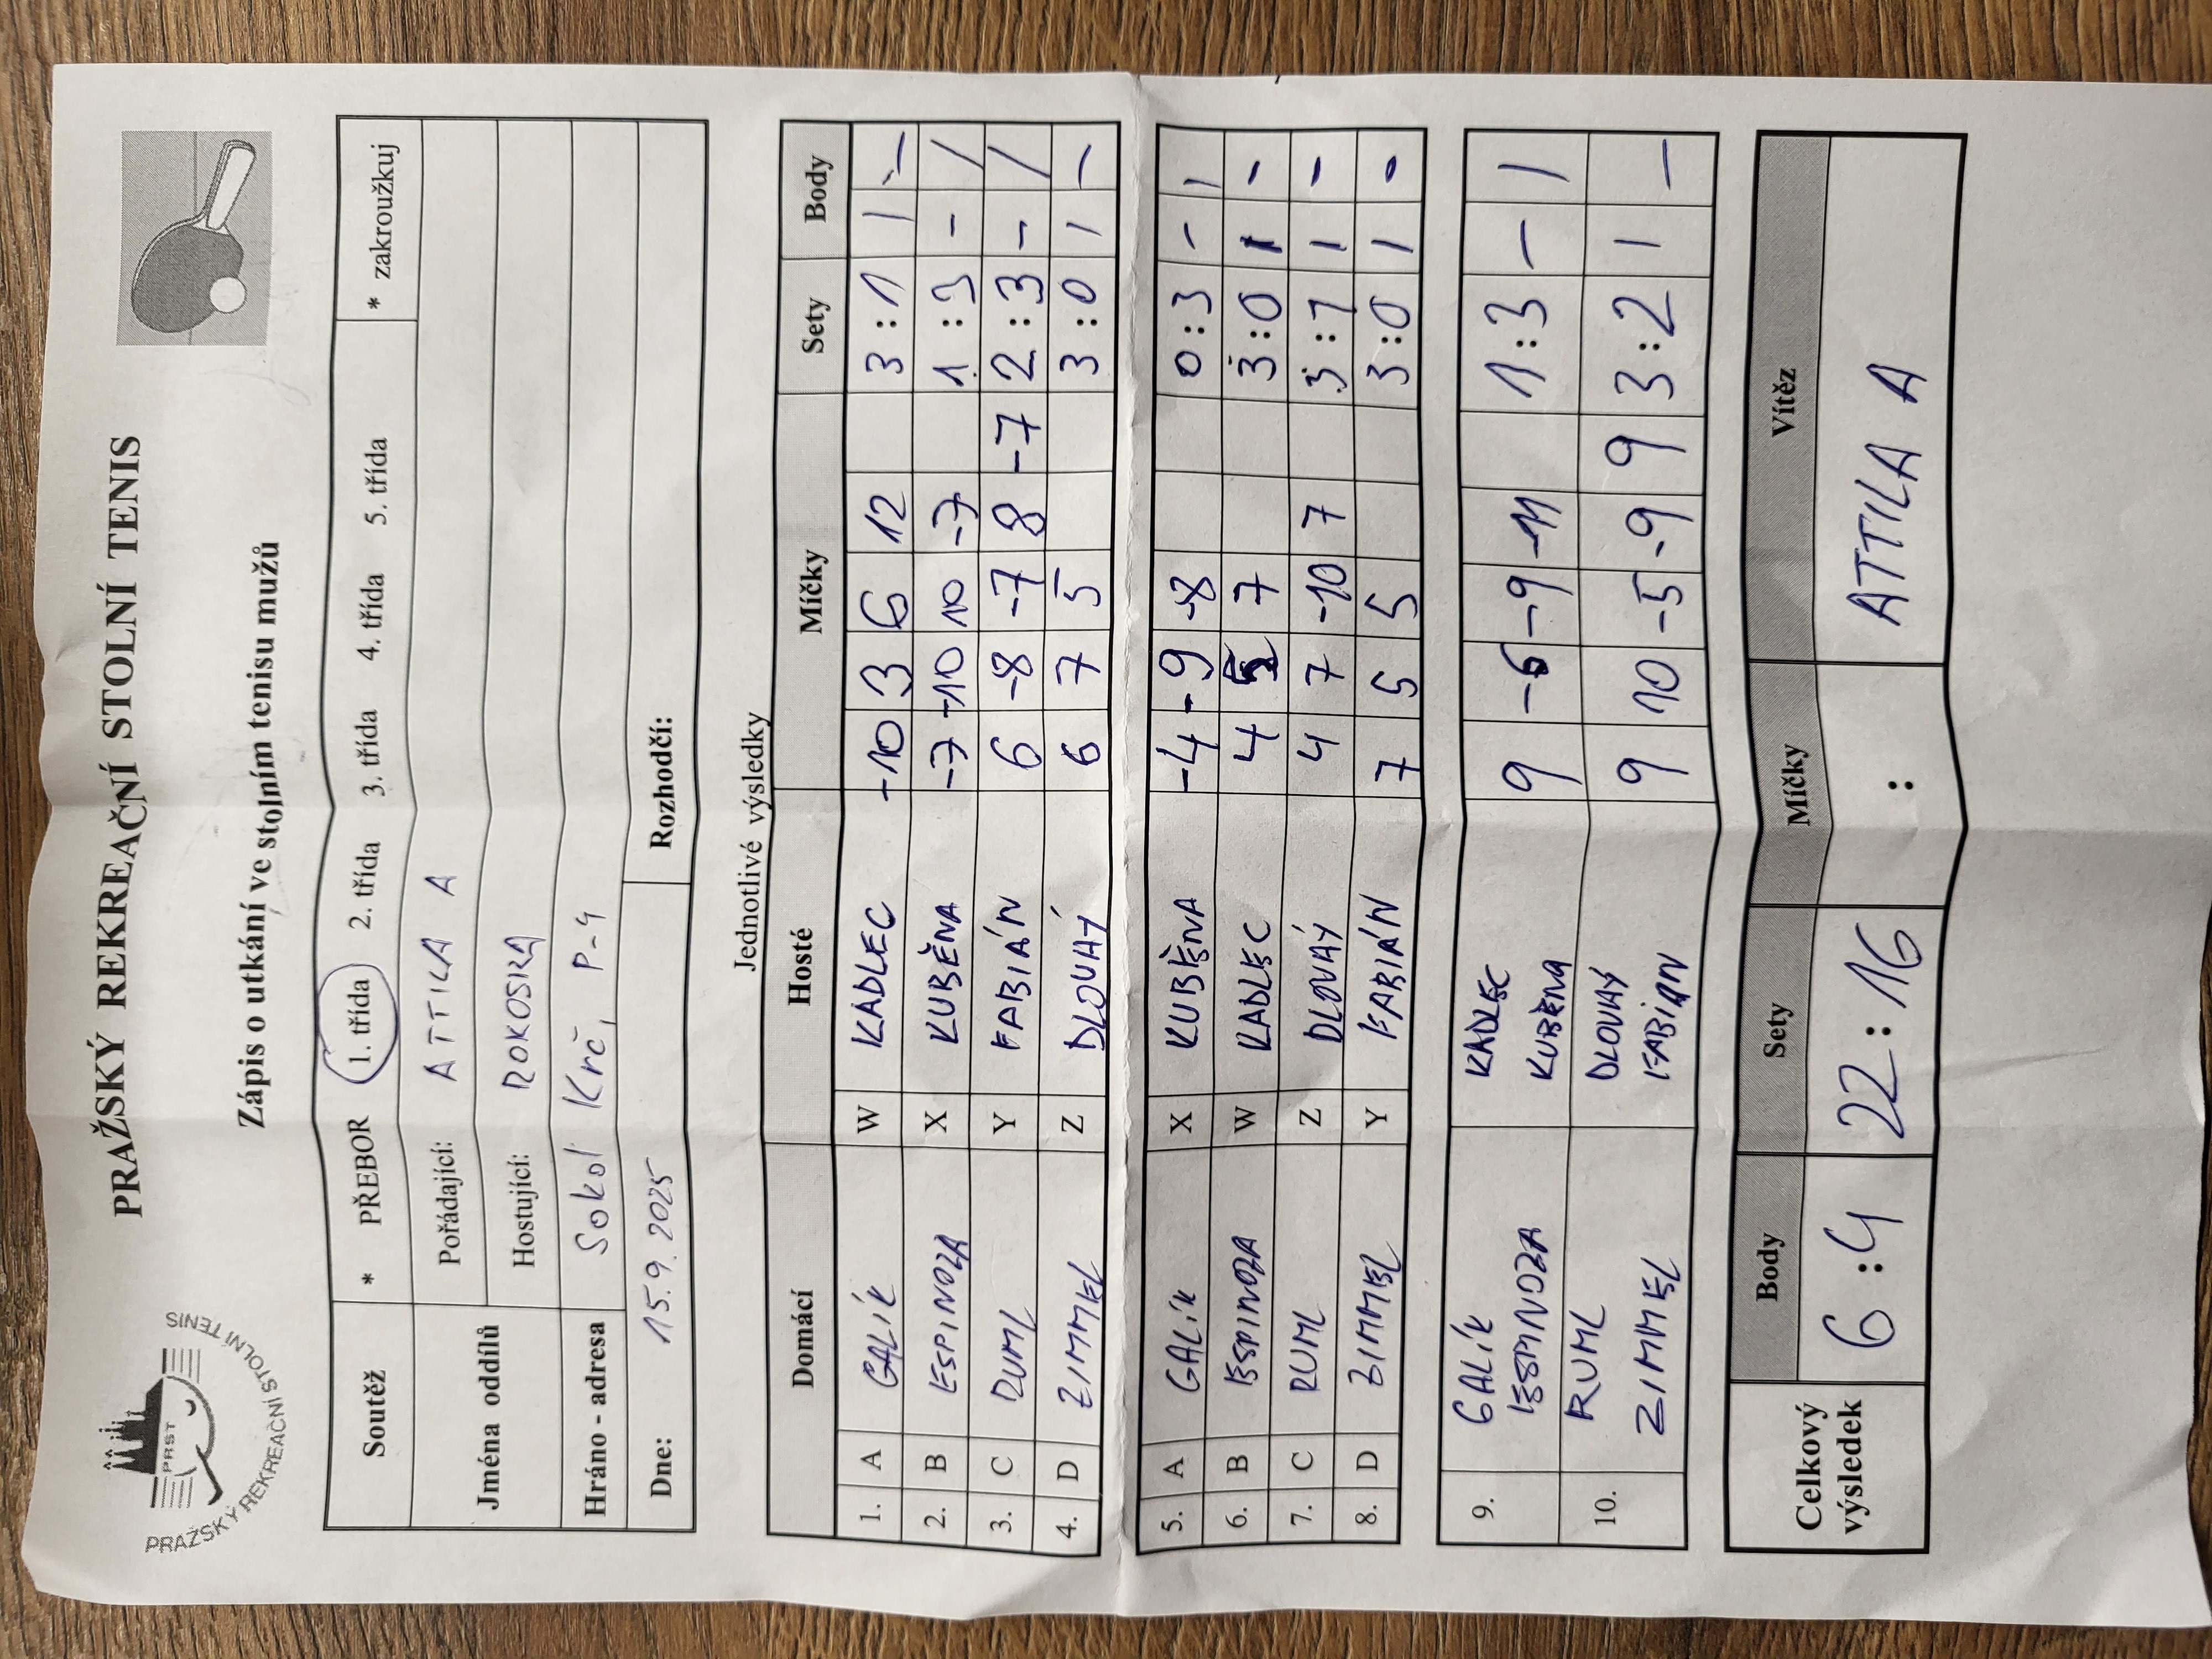 PRAŽSKÝ REKREAČNÍ STOLNÍ TENIS
PRST
PRAŽSKÝ REKREAČNÍ STOLNÍ TENIS
Zápis o utkání ve stolním tenisu mužů
Soutěž * PŘEBOR 1. třída 2. třída 3. třída 4. třída 5. třída * zakroužkuj
Jména oddílů Pořádající: ATTILA A
Hostující: ROKOSKA
Hráno - adresa Sokol Krč, P-4
Dne: 15.9.2025 Rozhodčí:
Jednotlivé výsledky
Domácí Hosté Míčky Sety Body
1. A GALÍK W KADLEC -10 3 6 12 3:1 1 -
2. B ESPINOZA X KUBĚNA -7 -10 10 -7 1:3 - /
3. C RUML Y FABIÁN 6 -8 -7 8 -7 2:3 - /
4. D ZIMMEL Z DLOUHÝ 6 7 5 3:0 1 -
5. A GALÍK X KUBĚNA -4 -9 -8 0:3 - 1
6. B ESPINOZA W KADLEC 4 5 7 3:0 1 -
7. C RUML Z DLOUHÝ 4 7 -10 7 3:1 1 -
8. D ZIMMEL Y FABIÁN 7 5 5 3:0 1 -
9. GALÍK KADLEC
ESPINOZA KUBĚNA 9 -6 -9 -11 1:3 - 1
10. RUML DLOUHÝ
ZIMMEL FABIÁN 9 10 -5 -9 9 3:2 1 -
Celkový výsledek Body Sety Míčky Vítěz
6:4 22:16 : ATTILA A